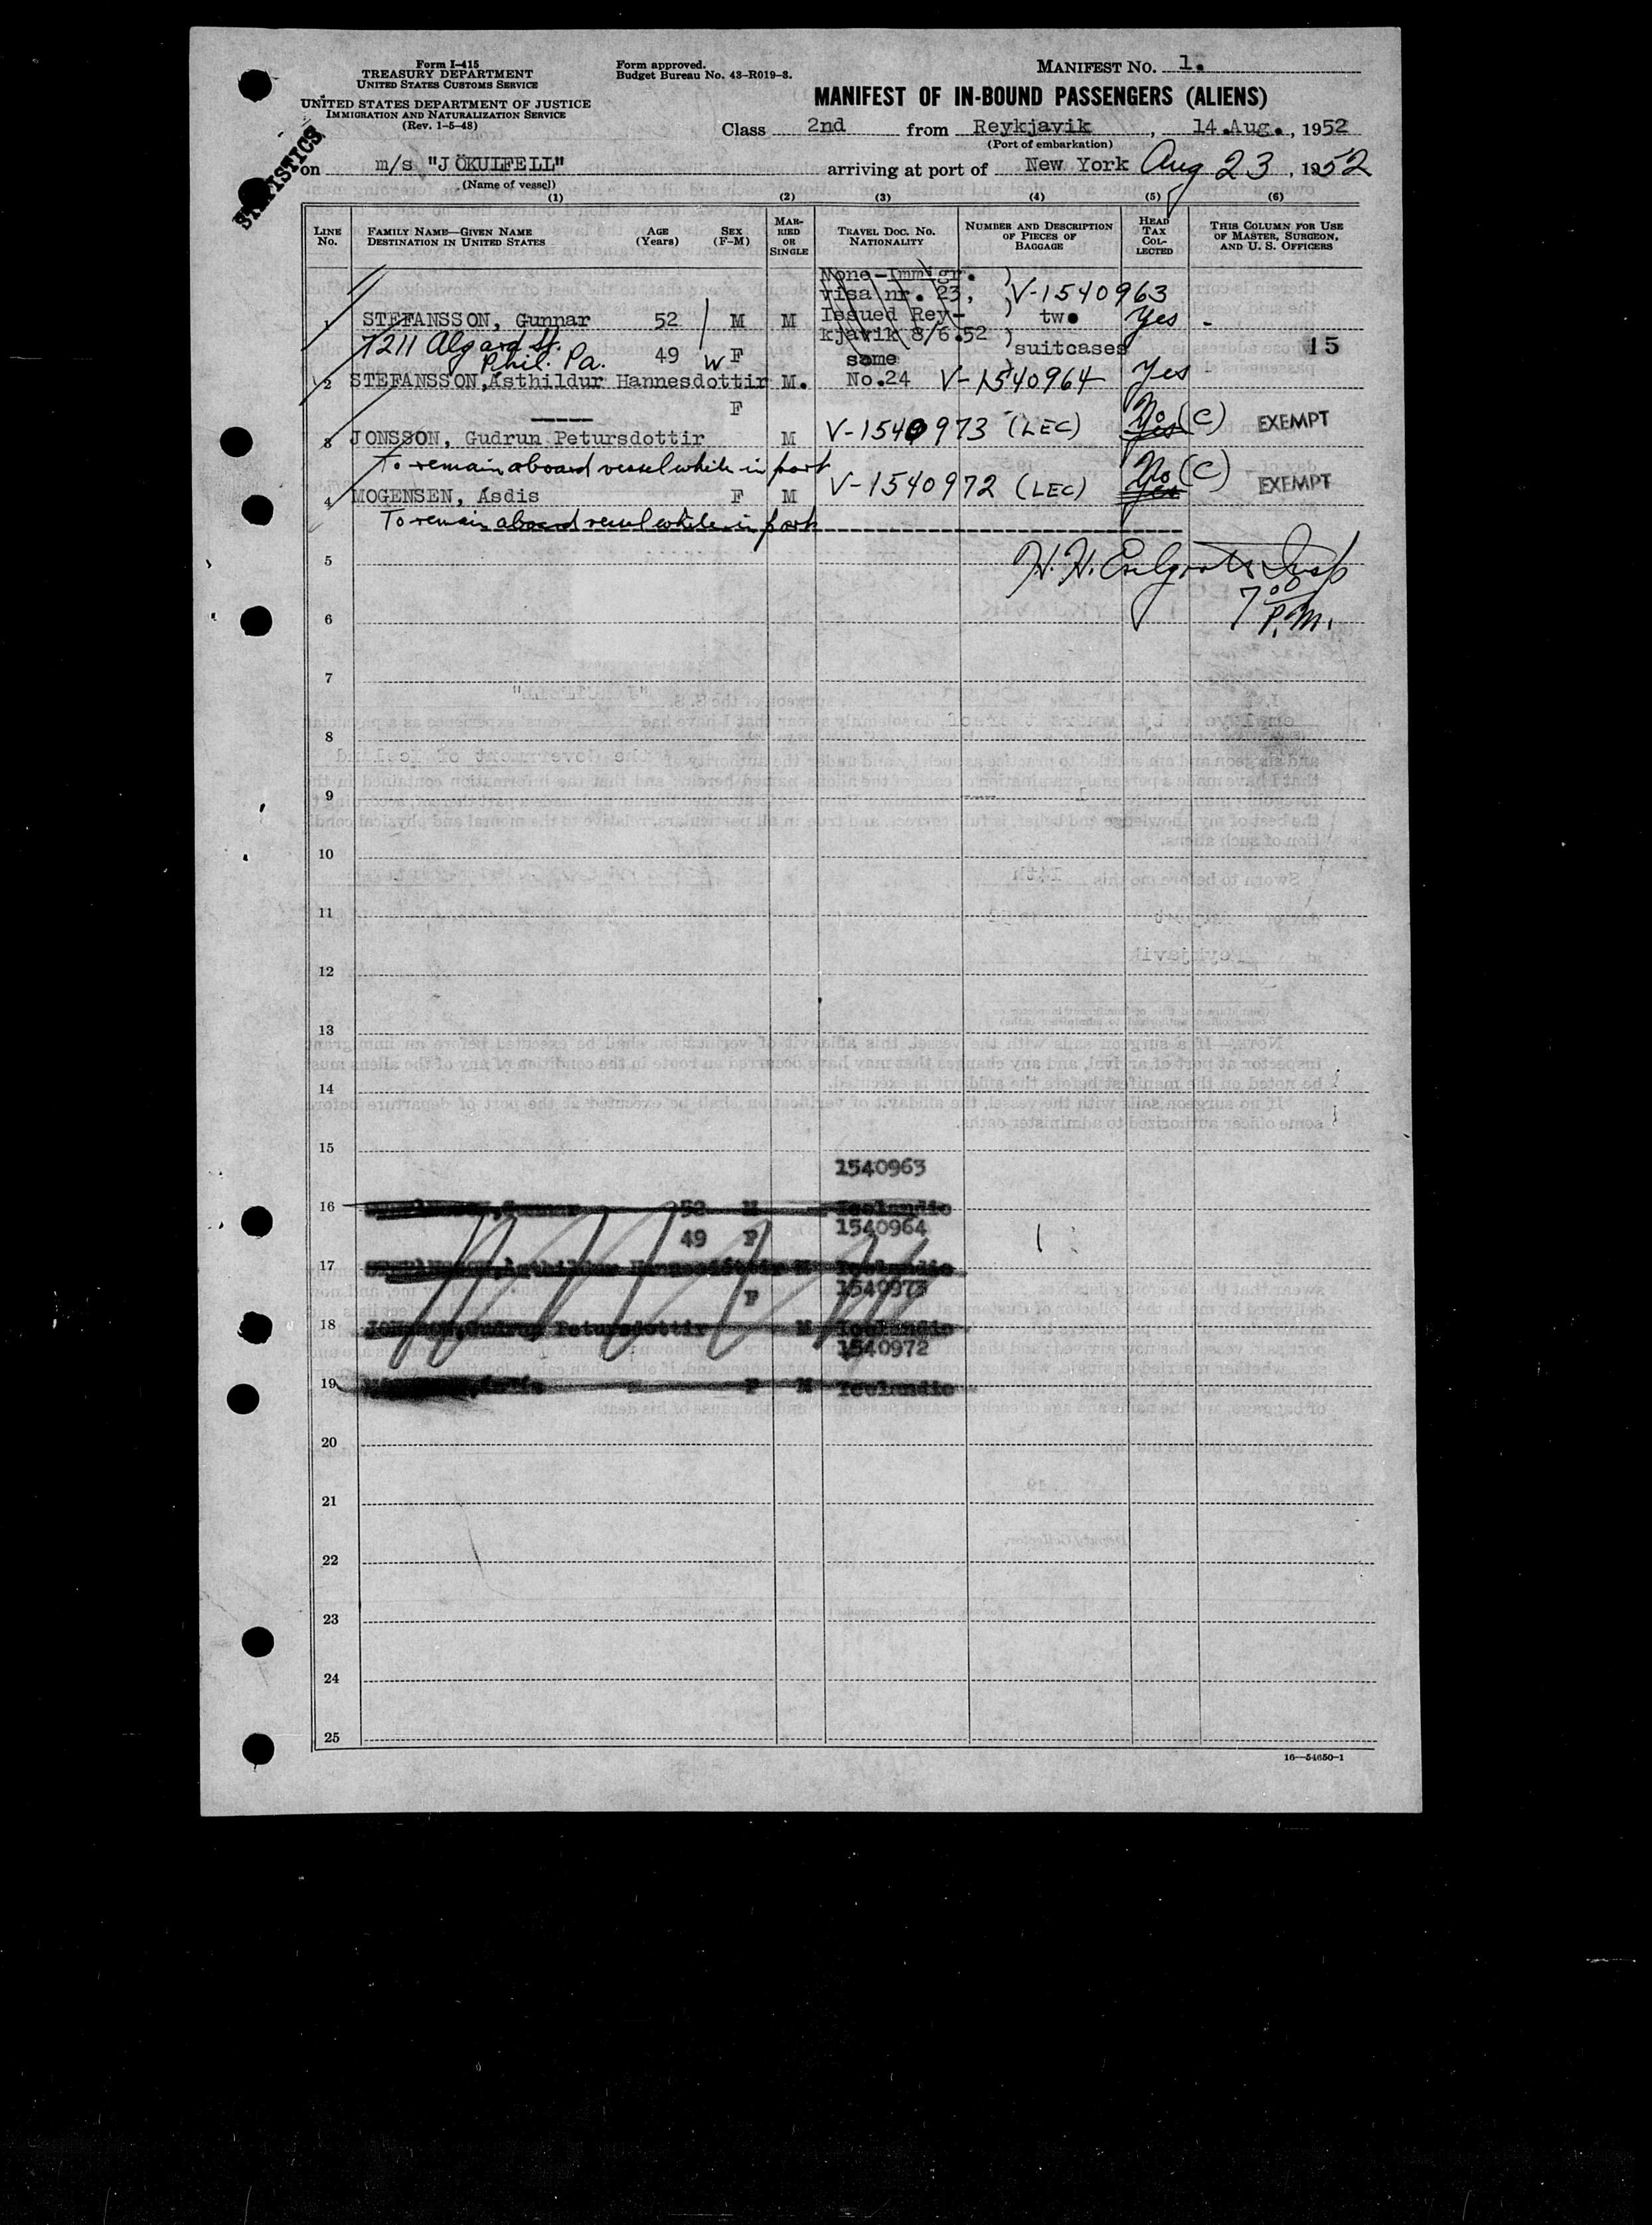 Form I-415
TREASURY DEPARTMENT
UNITED STATES CUSTOMS SERVICE
UNITED STATES DEPARTMENT OF JUSTICE
IMMIGRATION AND NATURALIZATION SERVICE
(Rev. 1-5-48)
Form approved.
Budget Bureau No. 43-R019-3.
MANIFEST NO. 1.
MANIFEST OF IN-BOUND PASSENGERS (ALIENS)
Class 2nd from Reykjavik, 14.Aug., 1952
(Port of embarkation)
STATISTICS
on m/s "JÖKULFELL" arriving at port of New York Aug 23, 1952
(Name of vessel)
(1) (2) (3) (4) (5) (6)
LINE No. FAMILY NAME—GIVEN NAME DESTINATION IN UNITED STATES AGE (Years) SEX (F-M) MARRIED OR SINGLE TRAVEL DOC. NO. NATIONALITY NUMBER AND DESCRIPTION OF PIECES OF BAGGAGE HEAD TAX COLLECTED THIS COLUMN FOR USE OF MASTER, SURGEON, AND U. S. OFFICERS
None-Immigr. )
visa nr. 23, ) V-1540963
1 STEFANSSON, Gunnar 52 M M Issued Rey- ) two Yes -
kjavik 8/6.52 ) suitcases 15
7211 Algard St.
Phil. Pa. 49 W F same
2 STEFANSSON, Ásthildur Hannesdottir M. No.24 ) V-1540964 Yes -
F
3 JONSSON, Gudrun Petursdottir M V-1540973 (LEC) No Yes (C) EXEMPT
To remain aboard vessel while in port
4 MOGENSEN, Ásdis F M V-1540972 (LEC) No Yes (C) EXEMPT
To remain aboard vessel while in port
5
H. H. Insp
7 00 P.M.
6
7
8
9
10
11
12
13
14
15
1540963
16 Gunnar 52 M Icelandic
1540964
49 F
17 Ásthildur Hannesdóttir M Icelandic
1540973
F
18 JONSSON, Gudrun Petursdottir M Icelandic
1540972
19 F M Icelandic
20
21
22
23
24
25
16—54650-1